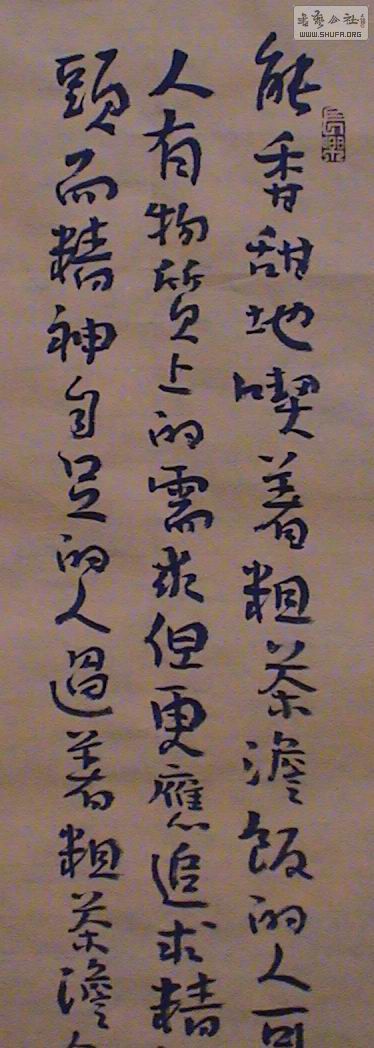 能香甜地喫着粗茶澹飯的人可
人有物質上的需求但更應追求精
頭而精神自足的人過着粗茶澹
書藝公社
WWW.SHUFA.ORG